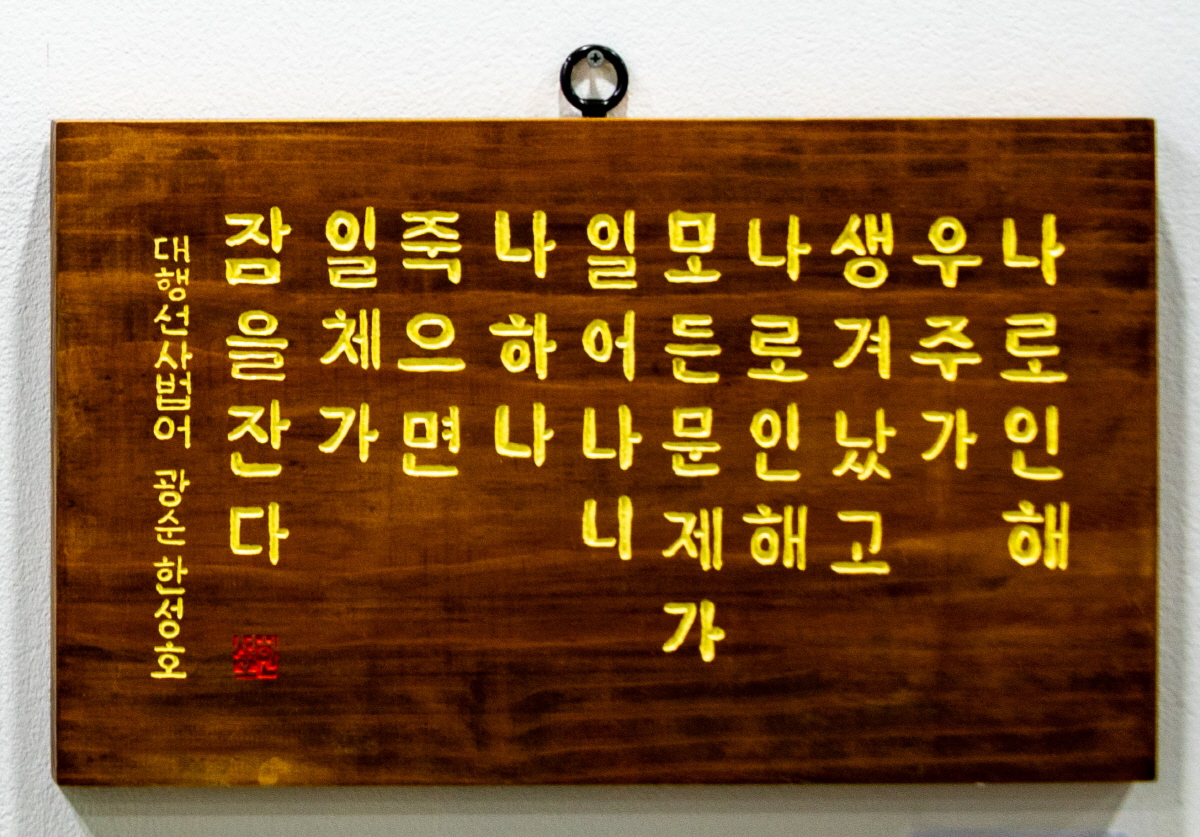 나로인해
우주가
생겨났고
나로인해
모든문제가
일어나니
나하나
죽으면
일체가
잠을잔다
대행선사법어 광순 한성호